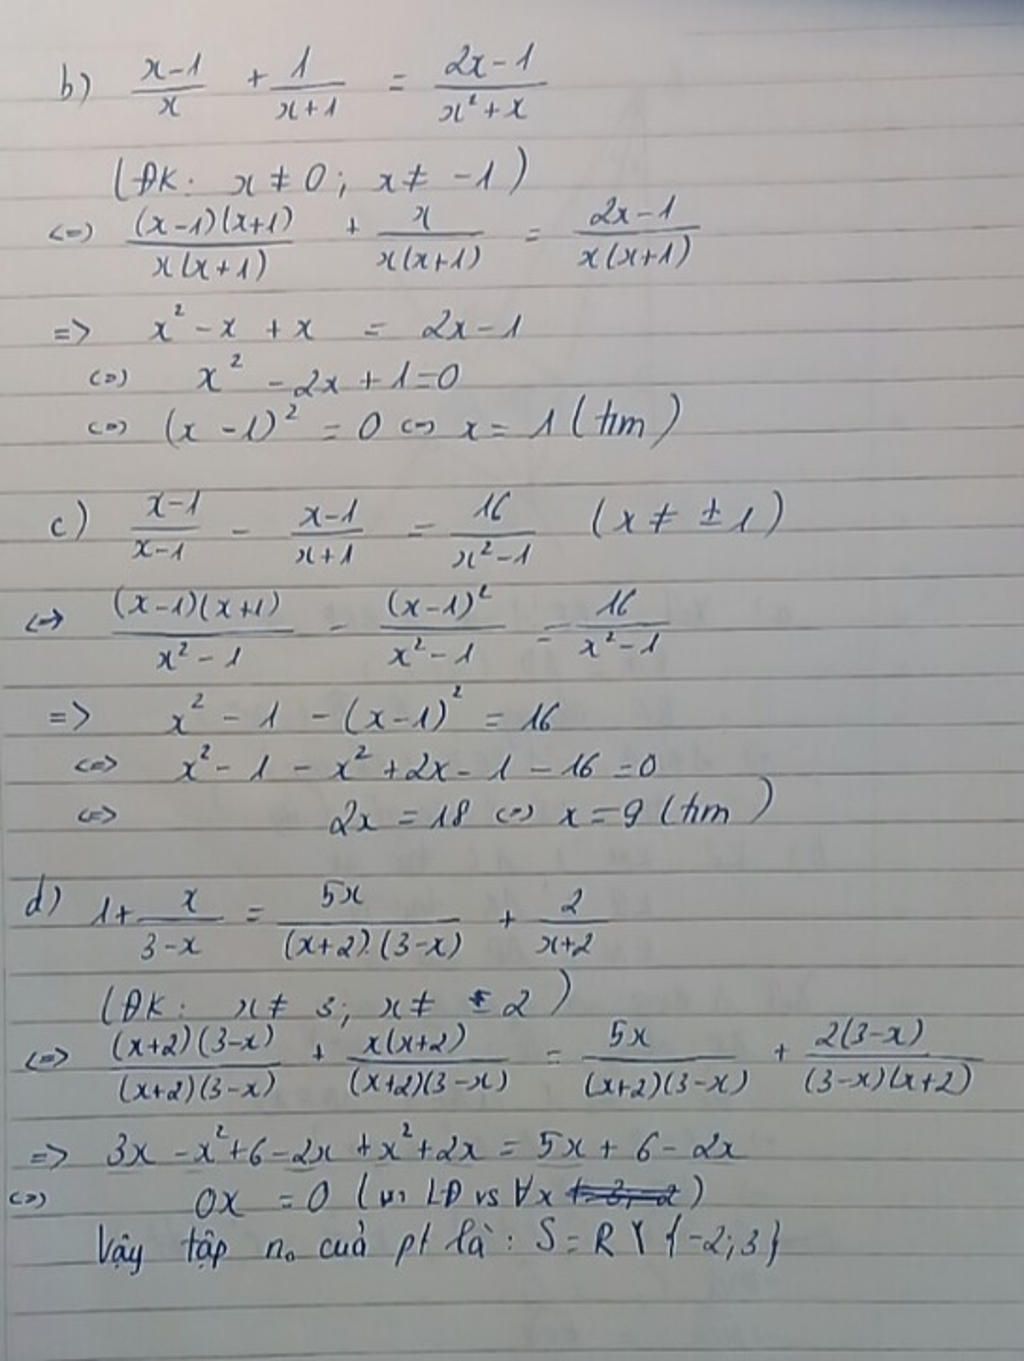 b) (x-1)/x + 1/(x+1) = (2x-1)/(x²+x)
(ĐK: x ≠ 0; x ≠ -1)
<=> (x-1)(x+1)/x(x+1) + x/x(x+1) = (2x-1)/x(x+1)
=> x² - x + x = 2x - 1
<=> x² - 2x + 1 = 0
<=> (x-1)² = 0 <=> x = 1 (tm)
c) (x-1)/(x-1) - (x-1)/(x+1) = 16/(x²-1) (x ≠ ±1)
<=> (x-1)(x+1)/(x²-1) - (x-1)²/(x²-1) = 16/(x²-1)
=> x² - 1 - (x-1)² = 16
<=> x² - 1 - x² + 2x - 1 - 16 = 0
<=> 2x = 18 <=> x = 9 (tm)
d) 1 + x/(3-x) = 5x/(x+2).(3-x) + 2/(x+2)
(ĐK: x ≠ 3; x ≠ -2)
<=> (x+2)(3-x)/(x+2)(3-x) + x(x+2)/(x+2)(3-x) = 5x/(x+2)(3-x) + 2(3-x)/(3-x)(x+2)
=> 3x - x² + 6 - 2x + x² + 2x = 5x + 6 - 2x
<=> 0x = 0 (LĐ vs ∀x)
Vậy tập n₀ của pt là: S = R \ {-2; 3}